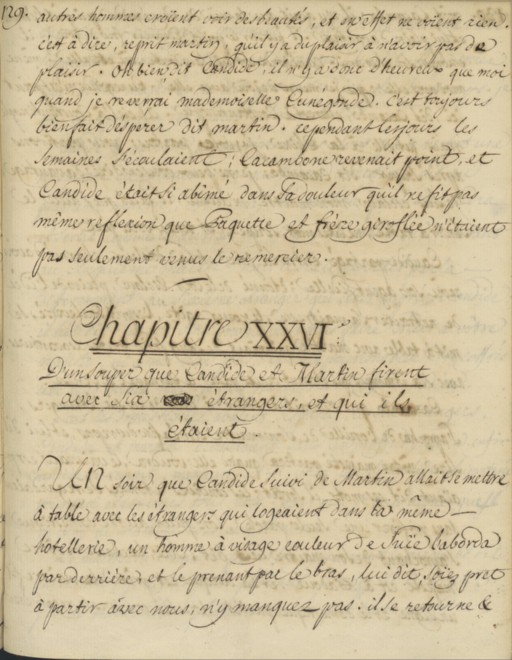 129.
autres hommes croïent voir des beautés, et en effet ne voïent rien.
c'est à dire, reprit martin, qu'il y a du plaisir à n'avoir pas de
plaisir. oh bien dit Candide, il n'y a donc d'heureux que moi
quand je reverrai mademoiselle Cunégonde. c'est toujours
bien fait d'espérer dit martin. cependant les jours les
semaines s'écoulaient; Cacambo ne revenait point, et
Candide était si abimé dans sa douleur qu'il ne fit pas
même reflexion que Paquette et frére giroflée n'étaient
pas seulement venus le remercier.
Chapitre XXVI.
D'un souper que Candide et Martin firent
avec six étrangers, et qui ils
étaient
Un soir que Candide suivi de Martin allait se mettre
à table avec les étrangers qui logeaient dans la même
hotellerie, un homme à visage couleur de suïe l'aborda
par derriére, et le prenant par le bras, lui dit, soïez pret
à partir avec nous, n'y manquez pas. il se retourne &